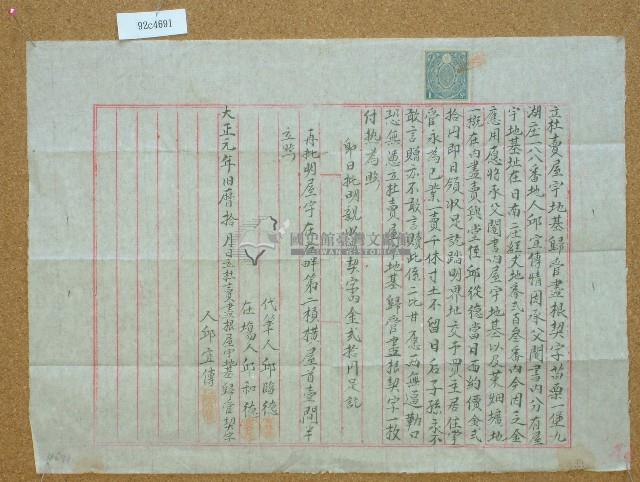 92c4691
立杜賣屋宇地基歸管盡根契字苗栗一堡九
湖庄一八番地人邱宜傳情因承父鬮書內分有屋
宇地基址在日南庄經丈地番弍百叁番內今因乏金
應用愿將承父鬮書內屋宇地基以及菜畑壙地
一概在內盡賣與堂侄邱從德當日面約價金弍
拾円即日領收足訖踏明界址交手買主居住掌
管永為己業一賣千休寸土不留日后子孫永不
敢言贈亦不敢言贖此係二比甘愿兩無逼勒口
恐無憑立杜賣屋宇地基歸管盡根契字一枚
付执為照
即日批明親收契字內金弍拾円足訖
再批明屋宇在左畔第二槓橫屋首壹間半
立照
代筆人邱臨德
在場人邱和德
大正元年旧曆拾月日立杜賣盡根屋宇地基歸管契字
人邱宜傳
國史館臺灣文獻館
TAIWAN HISTORICA